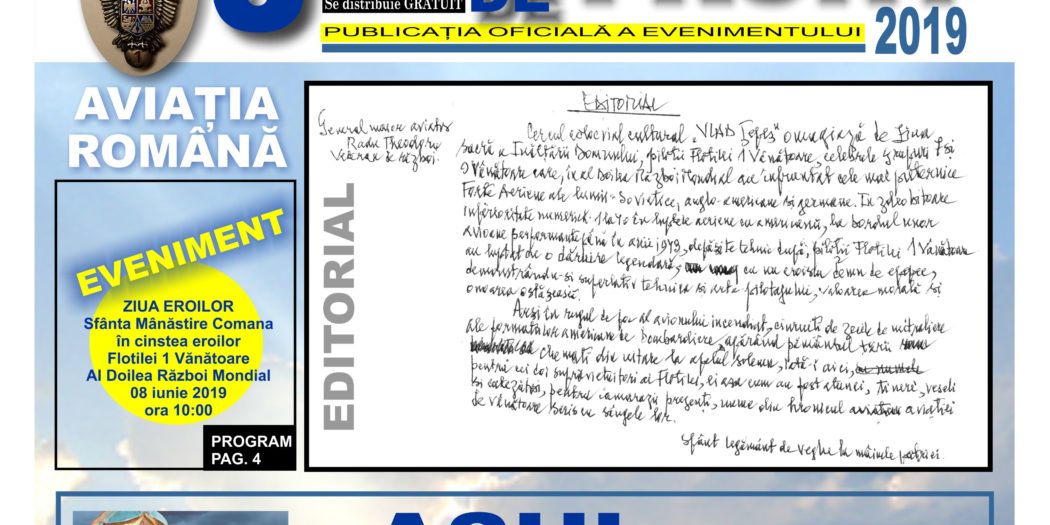 Se distribuie GRATUIT
DE
PUBLICAȚIA OFICIALĂ A EVENIMENTULUI
2019
AVIAȚIA
ROMÂNĂ
EVENIMENT
ZIUA EROILOR
Sfânta Mânăstire Comana
în cinstea eroilor
Flotilei 1 Vânătoare
Al Doilea Război Mondial
08 iunie 2019
ora 10:00
PROGRAM
PAG. 4
EDITORIAL
EDITORIAL
General maior aviator
Radu Theodoru
Veteran de război.
Cercul colocvial cultural "VLAD Țepeș" omagiază de Ziua
sacră a Înălțării Domnului, piloții Flotilei 1 Vânătoare, celebrele grupuri 7 și
9 Vânătoare care, în al Doilea Război Mondial au înfruntat cele mai puternice
Forțe Aeriene ale lumii - Sovietice, anglo-americane și germane. În
inferioritate numerică în luptele aeriene cu americanii, la bordul unor
avioane performante până în anii 1943, depășite tehnic după, piloții Flotilei 1 Vânătoare
au luptat cu o dârzire legendară, cu un eroism demn de epopee,
demonstrându-și superlativ tehnica și arta pilotajului, valoarea morală și
onoarea ostășească.
Arși în rugul de foc al avionului incendiat, ciuruiți de zecile de mitraliere
ale formațiilor americane de bombardiere, apărând pământul țării
chemați din uitare la apelul solemn, iată-i aici,
pentru cei doi supraviețuitori ai Flotilei, ei așa cum au fost atunci, tineri, veseli
și cutezători, pentru camarazii prezenți, nume din hronicul aviației
de vânătoare scris cu sângele lor.
Sfânt legământ de veghe la mâinele patriei.